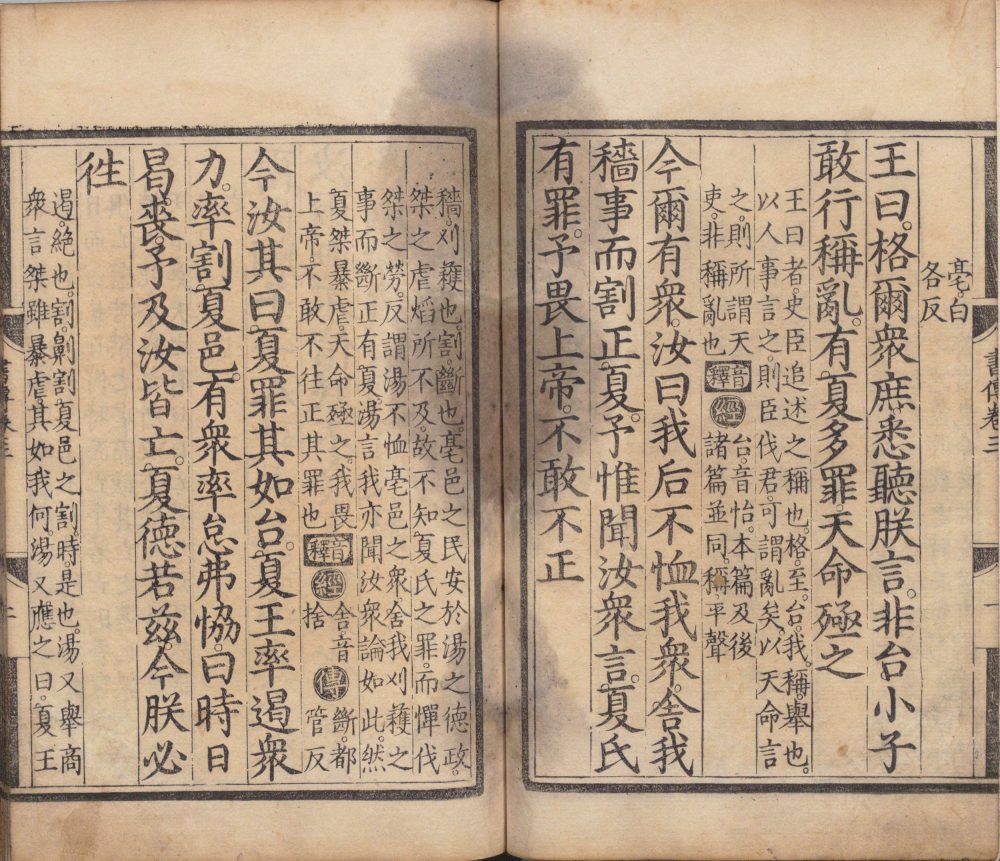 亳白
各反
王曰。格爾衆庶悉聽朕言。非台小子
敢行稱亂。有夏多罪。天命殛之
王曰者。史臣追述之稱也。格。至。台。我。稱。舉也。
以人事言之。則臣伐君。可謂亂矣。以天命言
之。則所謂天
吏。非稱亂也
音釋
經
台。音怡。本篇及後
諸篇並同。稱。平聲
今爾有衆。汝曰我后不恤我衆。舍我
穡事而割正夏。予惟聞汝衆言。夏氏
有罪。予畏上帝。不敢不正
穡。刈穫也。割。斷也。亳邑之民安於湯之德政。
桀之虐焰所不及。故不知夏氏之罪。而憚伐
桀之勞。反謂湯不恤亳邑之衆。舍我刈穫之
事。而斷正有夏。湯言我亦聞汝衆論如此。然
夏桀暴虐。天命殛之。我畏
上帝。不敢不往正其罪也
音釋
經
舍音
捨
傳
斷。都
管反
今汝其曰。夏罪其如台。夏王率遏衆
力。率割夏邑。有衆率怠弗恊。曰時日
曷喪。予及汝皆亡。夏德若兹。今朕必
徃
遏。絶也。割。劓割夏邑之割。時。是也。湯又舉商
衆言桀雖暴虐。其如我何。湯又應之曰。夏王
書傳卷三